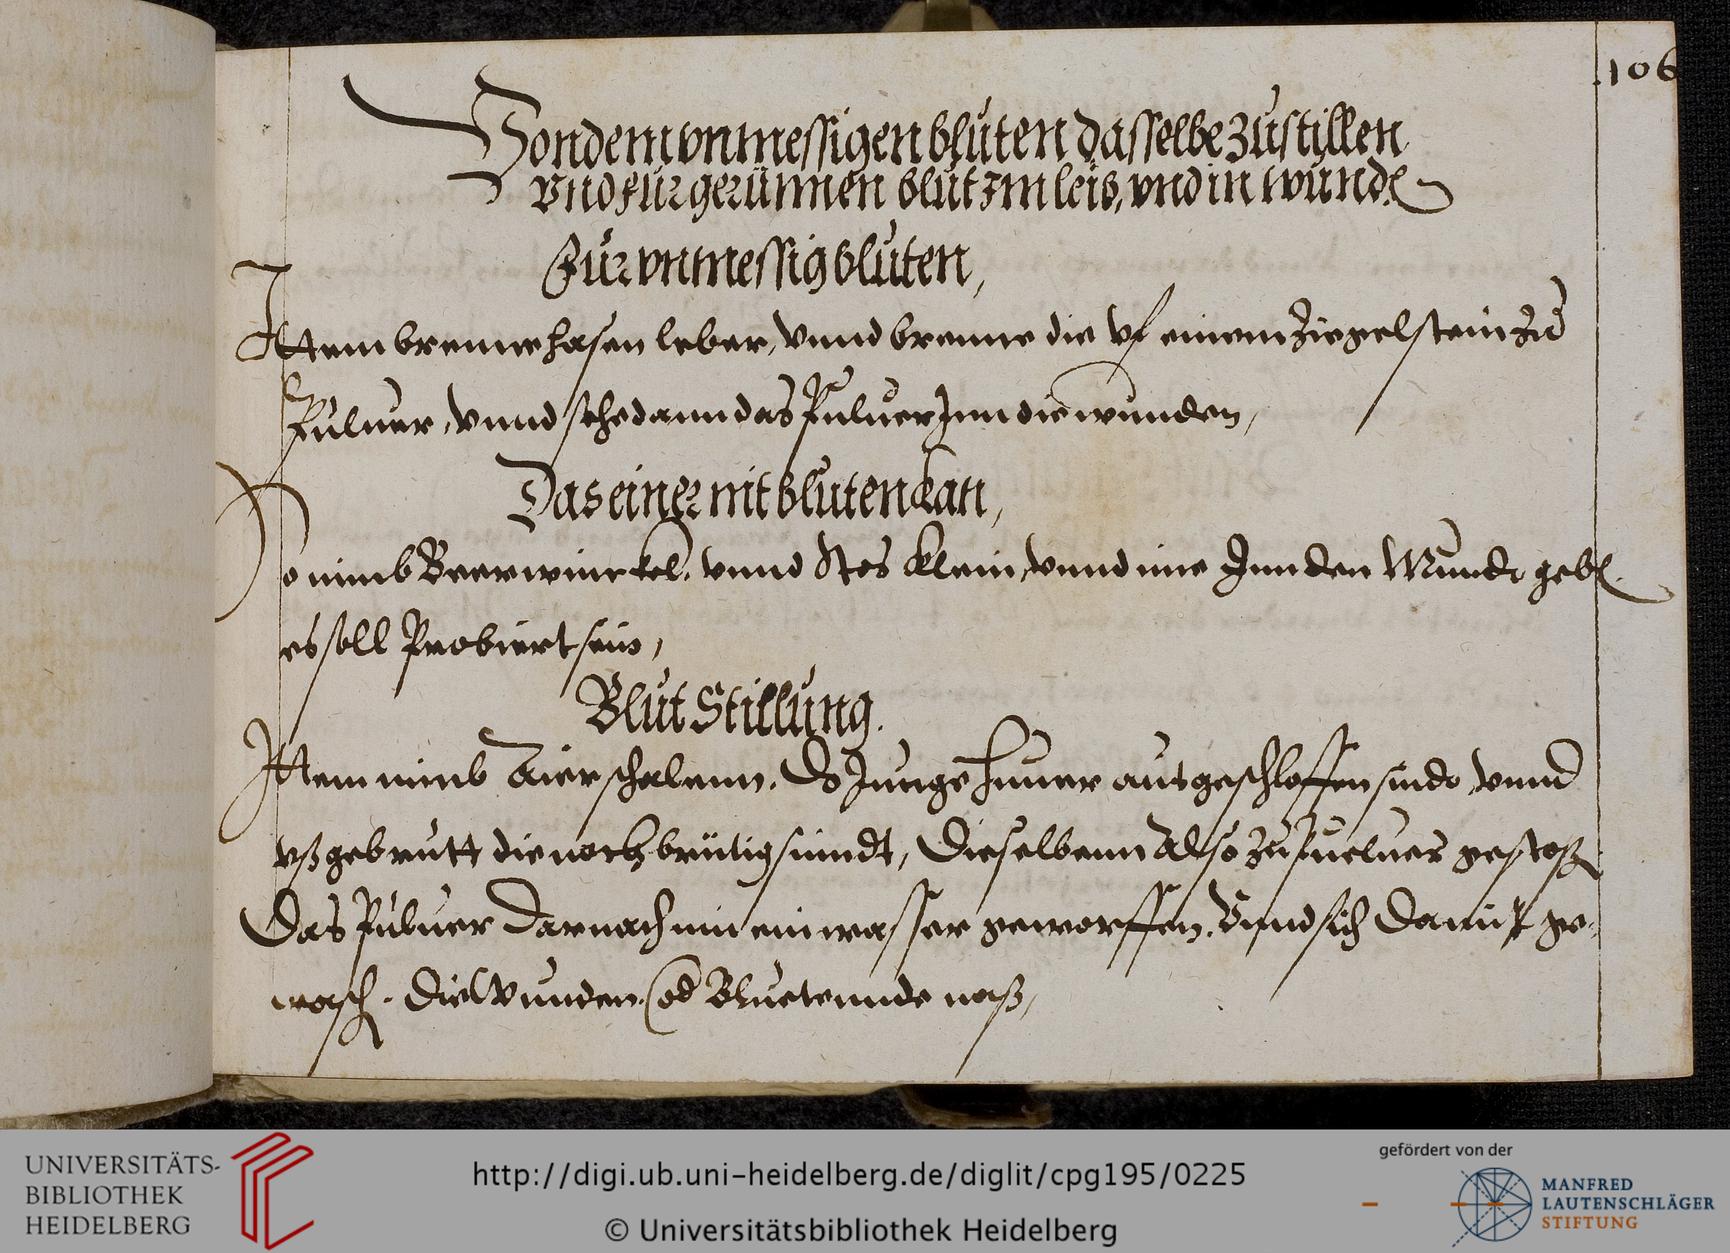 106
Von dem vnmessigen bluten dasselbe zustillen
vnd fur gerunnen blut im leib, vnd in wund
Fur vnmessig bluten,
Ittem brenne hasen leber, vnnd brenne die vf einem Ziegelstein zu
Puluer, vnnd sehe dann das Puluer Inn die wunden,
Das einer nit bluten kan,
So nimb Beerwinckel. vnnd Stos klein, vnnd ime Inn den Mundt gebe
es soll Probiert sein,
Blut Stillung.
Ittem nimb Aierschalenn. Do Junge huner ausgeschloffen sindt, vnnd
vßgebrutt die noch brütig sindt, Dieselbenn Also zu puelues gestoß
Das Puluer Darnach inn ein wasser geworffen. Vnnd sich Damit ge-
wasch. Die Wunden. od Bluetennde naß,
UNIVERSITÄTS-
BIBLIOTHEK
HEIDELBERG
http://digi.ub.uni-heidelberg.de/diglit/cpg195/0225
© Universitätsbibliothek Heidelberg
gefördert von der
MANFRED
LAUTENSCHLÄGER
STIFTUNG